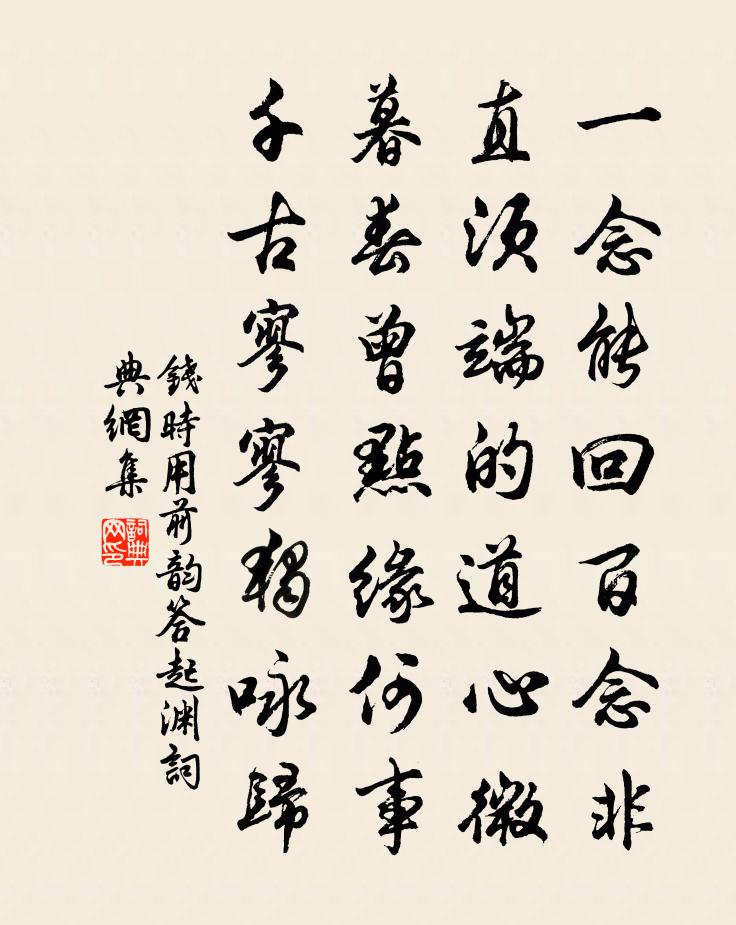 一念能回百念非
直須端的道心微
暮春曾點緣何事
千古寥寥獨咏歸
錢時用前韵答起渊詞
典網集
詞典网印